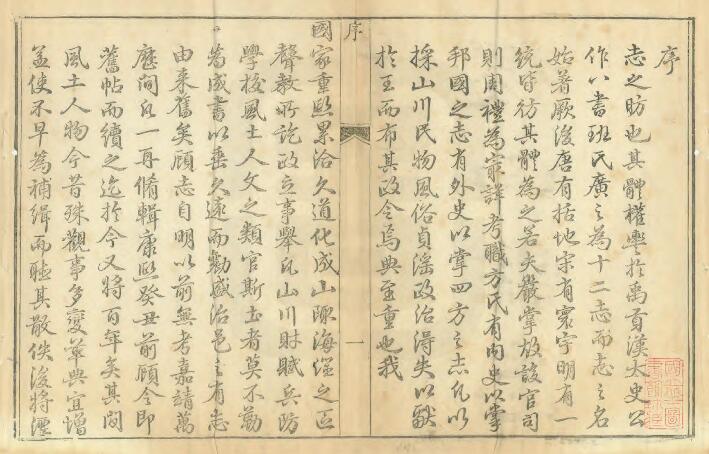 序
志之昉也其體權輿於禹貢漢太史公
作八書班氏廣之為十二志而志之名
始著厥後唐有括地宋有寰宇明有一
統皆彷其體為之若夫嚴掌故設官司
則周禮為最詳考職方氏有內史以掌
邦國之志有外史以掌四方之志凡以
採山川民物風俗貞淫政治得失以獻
於王而布其政令焉典至重也我
序
一
國家重熙累洽久道化成山陬海澨之區
聲教所訖政立事舉凡山川財賦兵防
學校風土人文之類官斯土者莫不勒
為成書以垂久遠而勷盛治邑之有志
由來舊矣顧志自明以前無考嘉靖萬
歷間凡一再脩輯康熙癸丑前顧令即
舊帖而續之迄於今又將百年矣其間
風土人物今昔殊觀事多變革典宜增
益使不早為補緝而聽其散佚後將湮